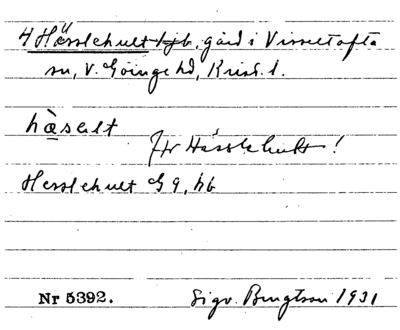 4 Hässlehult hjb, gård i Visseltofta
sn, V. Göinge hd, Krist. l.
hæ̀salt
Jfr Hässlehult!
Hesslehult G 9, hb
Nr 5392. Sigv. Bengtson 1931